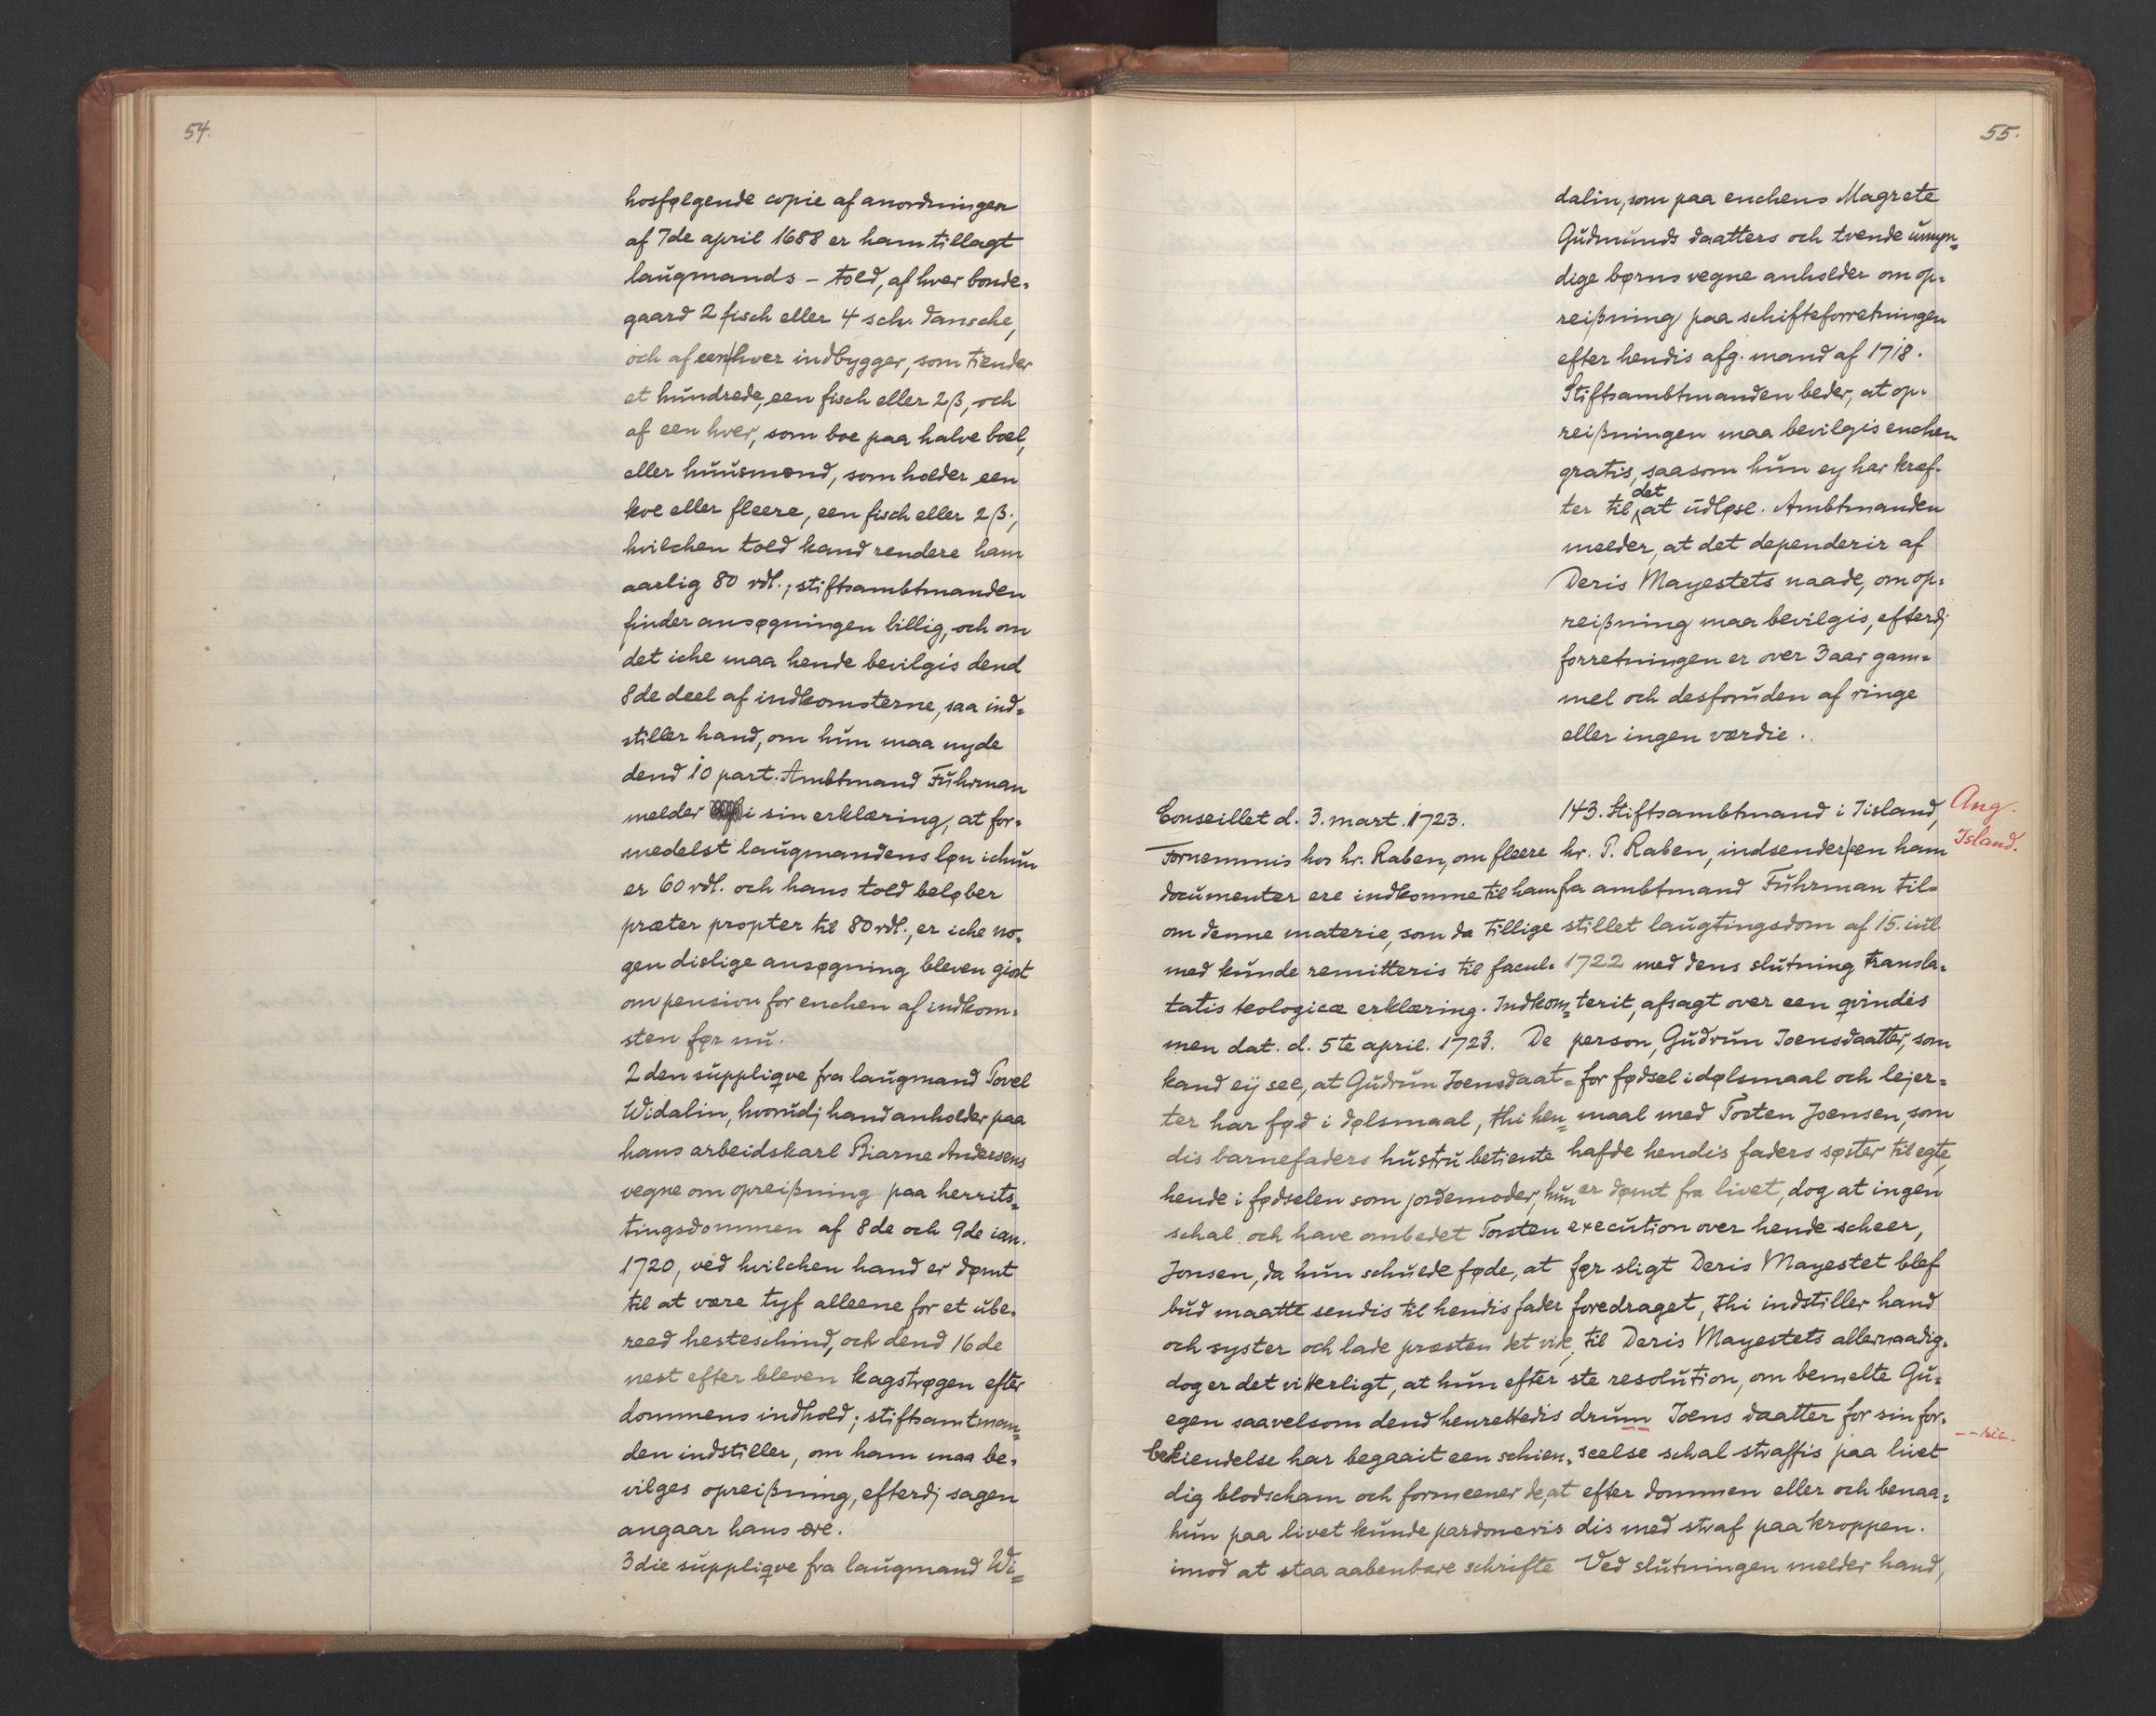 54.
hosfølgende copie af anordningen
af 7de april 1688 er ham tillagt
laugmands – told, af hver bonde-
gaard 2 fisch eller 4 sch. dansche,
och af een hver indbygger, som tiender
et hundrede, een fisch eller 2 ß, och
af een hver, som boe paa halve boel,
eller huusmænd, som holder een
koe eller fleere, een fisch eller 2 ß.,
hvilchen told kand rendere ham
aarlig 80 rdl.; stiftsambtmanden
finder ansøgningen billig, och om
det iche maa hende bevilgis dend
8de deel af indkomsterne, saa ind-
stiller hand, om hun maa nyde
dend 10 part. Ambtmand Fuhrman
melder i sin erklæring, at for-
medelst laugmandens løn ichun
er 60 rdl. och hans told beløber
præter propter til 80 rdl., er iche no-
gen dislige ansøgning bleven giort
om pension for enchen af indkom-
sten før nu.
2den suppliqve fra laugmand Povel
Widalin, hvorudj hand anholder paa
hans arbeidskarl Biarne Andersens
vegne om opreißning paa herrits-
tingsdommen af 8de och 9de ian.
1720, ved hvilchen hand er dømt
til at være tyf alleene for et ube-
reed hesteschind, och dend 16de
nest efter bleven kagstrøgen efter
dommens indhold; stiftsamtman-
den indstiller, om ham maa be-
vilges opreißning, efterdj sagen
angaar hans ære.
3die suppliqve fra laugmand Wi-
55.
dalin, som paa enchens Magrete
Gudmunds daatters och tvende umyn-
dige børns vegne anholder om op-
reißning paa schifteforretningen
efter hendis afg. mand af 1718.
Stiftsambtmanden beder, at op-
reißningen maa bevilgis enchen
gratis, saasom hun ey har kræf-
ter til det at udløse. Ambtmanden
melder, at det dependerir af
Deris Mayestets naade, om op-
reißning maa bevilgis, efterdj
forretningen er over 3 aar gam-
mel och desforuden af ringe
eller ingen værdie.
Conseillet d. 3. mart. 1723.
Fornemmis hos hr. Raben, om fleere
documenter ere indkomne til ham
om denne materie, som da tillige
med kunde remitteris til facul-
tatis teologicæ erklæring. Indkom-
men dat. d. 5te april. 1723. De
kand eij see, at Gudrun Joensdaat-
ter har fød i dølsmaal, thi hen-
dis barnefaders hustru betiente
hende i fødselen som jordemoder, hun
schal och have ombedet Torsten
Jonsen, da hun schulde føde, at
bud maatte sendis til hendis fader
och syster och lade præsten det vide,
dog er det vitterligt, at hun efter
egen saavelsom dend henrettedis
bekiendelse har begaait een schien-
dig blodscham och formeener de, at
hun paa livet kunde pardoneris
imod at staa aabenbare schrifte
143. Stiftsambtmand i Iisland,
hr. P. Raben, indsender een ham
fra ambtmand Fuhrman til-
stillet laugtingsdom af 15. iul.
1722 med dens slutning transla-
terit, afsagt over een qvindis
person, Gudrun Joensdaatter, som
for fødsel i dølsmaal och lejer-
maal med Torten Joensen, som
hafde hendis faders søster til egte,
er dømt fra livet, dog at ingen
execution over hende scheer,
før sligt Deris Mayestet blef
foredraget, thi indstiller hand
til Deris Mayestets allernaadig-
ste resolution, om bemelte Gu-
drum Joens daatter for sin for-
seelse schal straffis paa livet
efter dommen eller och benaa-
dis med straf paa kroppen.
Ved slutningen melder hand,
Ang.
Island.
-- sic.